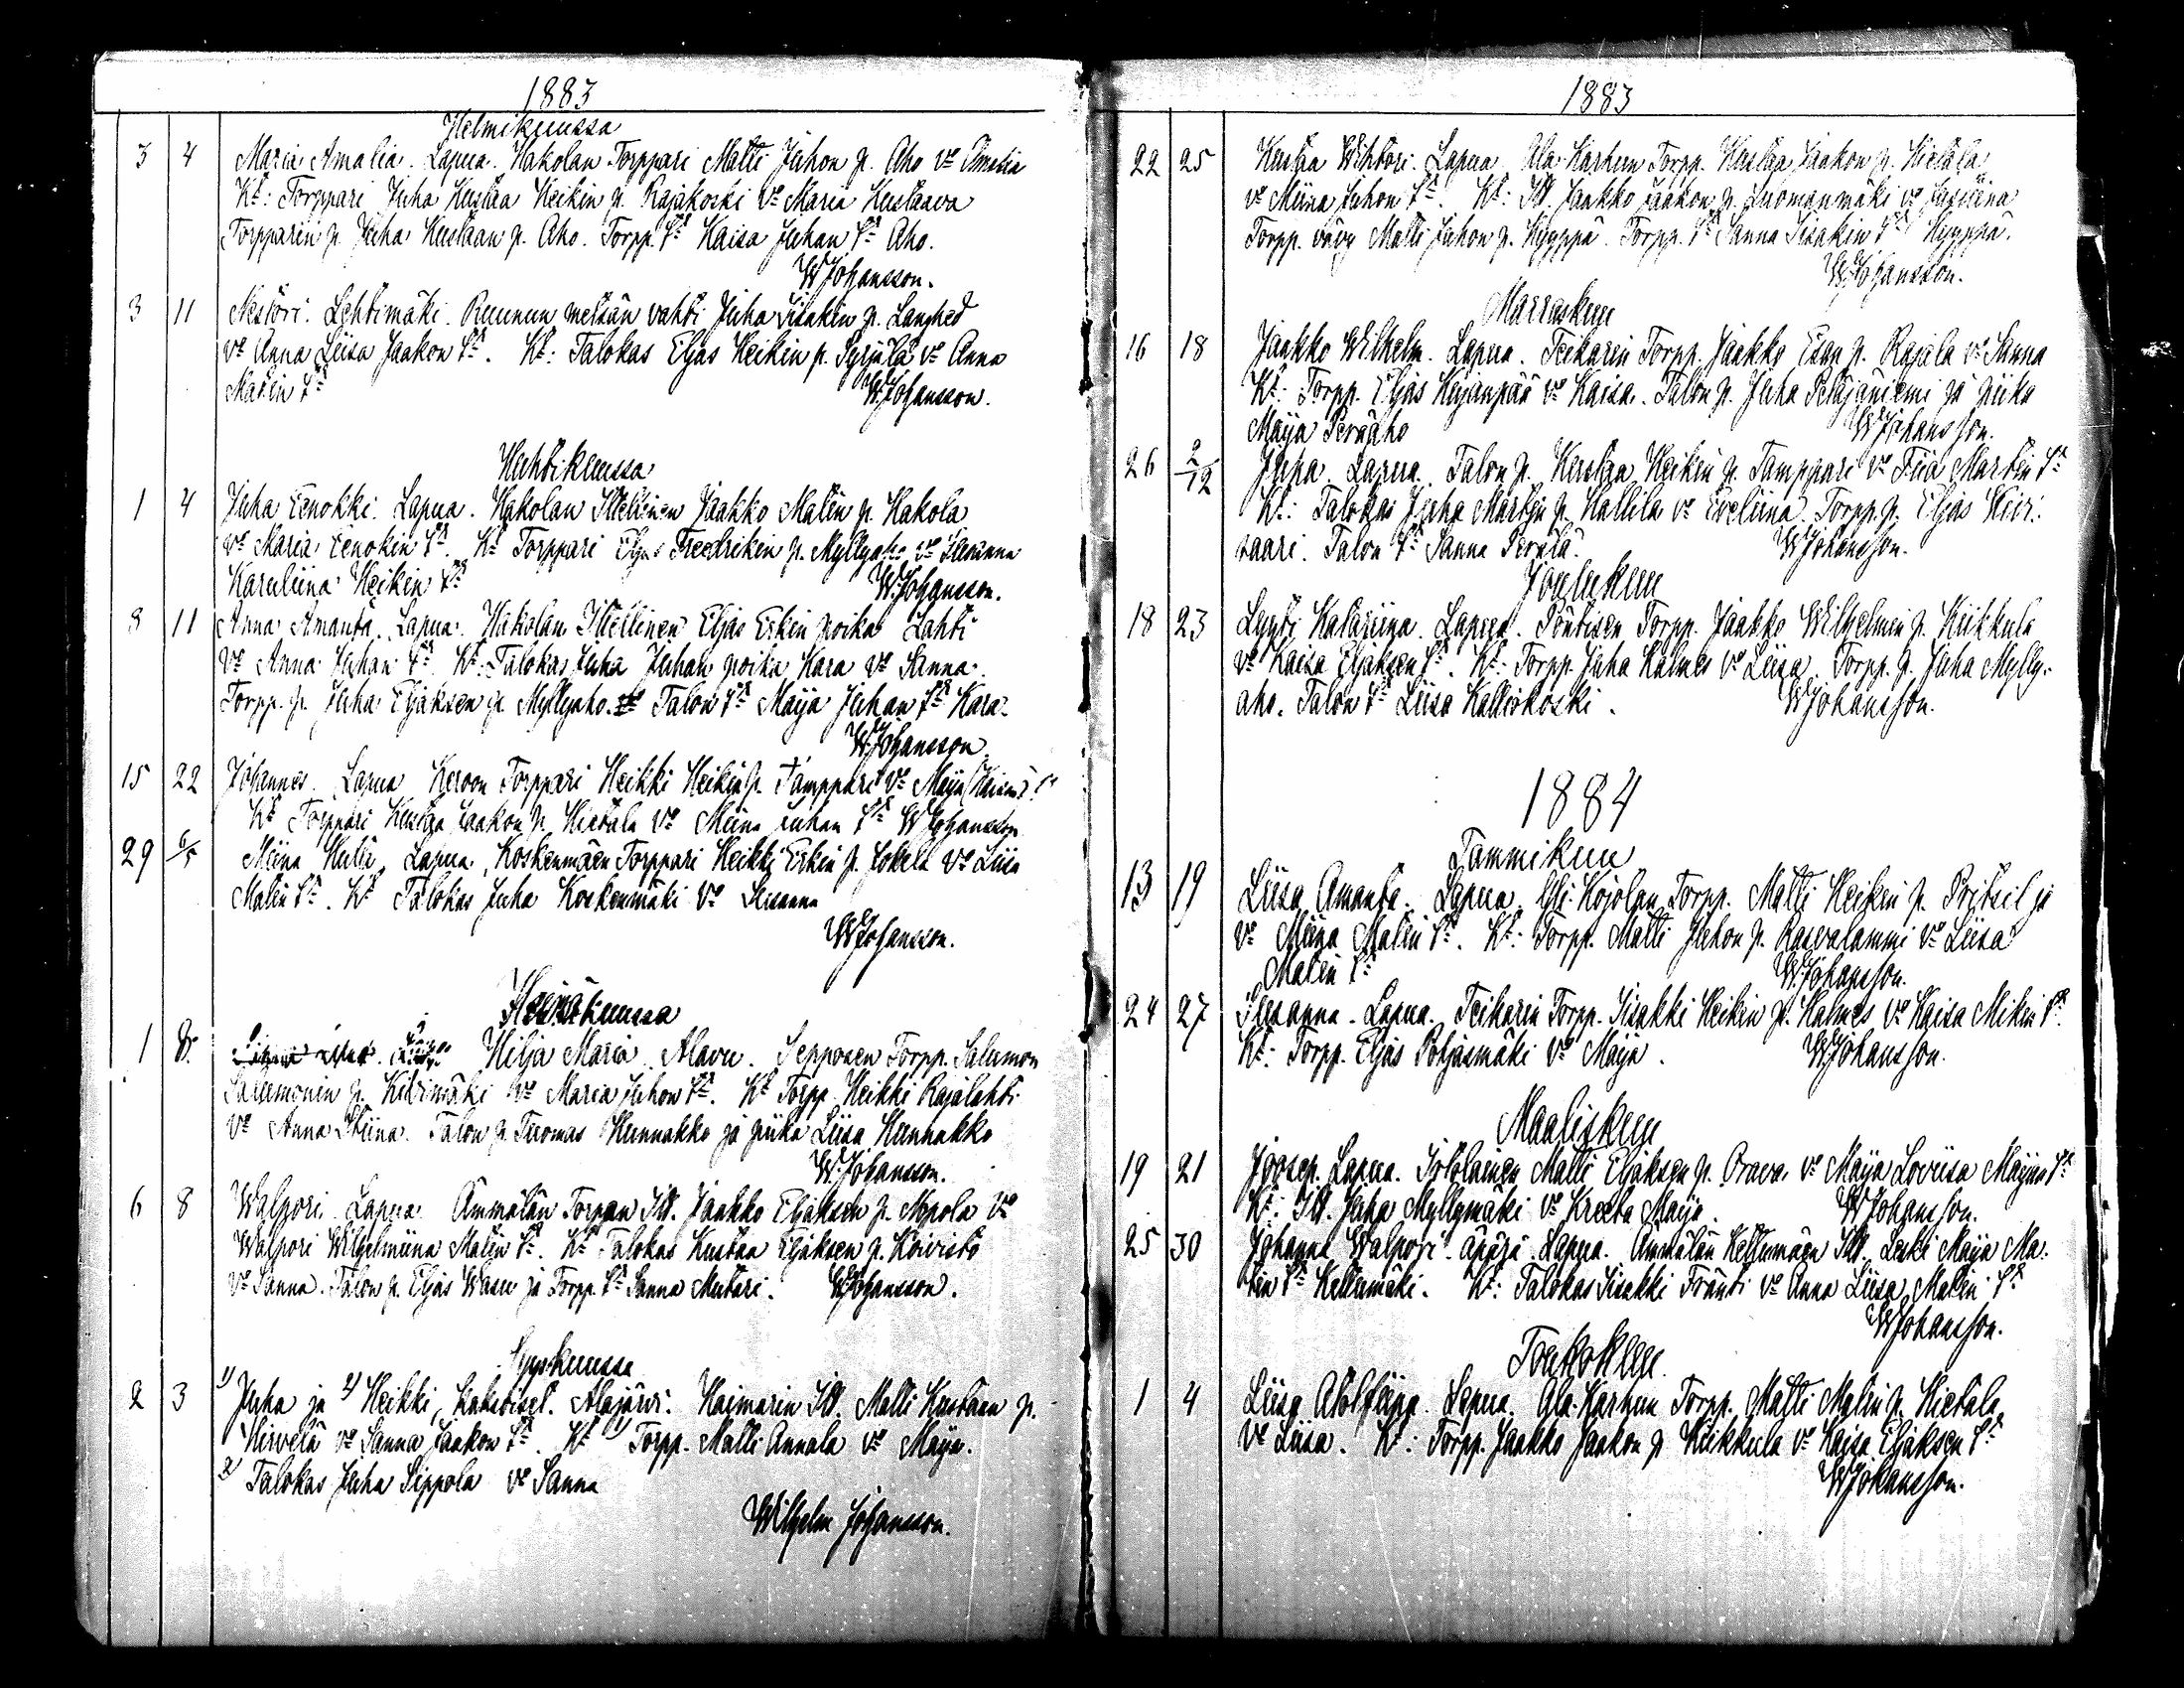 1883
Helmikuussa
3 4 Maria Amalia. Lapua. Hakolan Torppari Matti Juhon p. Aho vo Amalia
Kt: Torppari Juha Kustaa Heikin p. Rajakoski vo Maria Kustaava
Torpparin p. Juha Kustaan p. Aho. Torpp. tr Kaisa Juhan tr Aho.
W Johansson.
3 11 Nestori. Lehtimäki. Ruunun metsän vahti Juha Iisakin p. Langhed
vo Anna Liisa Jaakon tr. Kt: Talokas Eljas Heikin p. Syrjälä vo Anna
Matin tr
W. Johansson.
Huhtikuussa
1 4 Juha Eenokki. Lapua. Hakolan Itellinen Jaakko Matin p. Hakola
vo Maria Eenokin tr. Kt Torppari Eljas Fredrikin p. Myllyaho vo Susanna
Karuliina Heikin tr
W. Johansson.
8 11 Anna Amanta. Lapua. Hakolan Itellinen Eljas Erkin poika Lahti
vo Anna Juhan tr. Kt: Talokas Juha Juhan poika Kara vo Sanna.
Torpp. p. Juha Eljaksen p. Myllyaho. Talon tr Maija Juhan tr Kara.
W. Johansson
15 22 Johannes. Lapua Keroon Torppari Heikki Heikin p. Tamppari vo Maija
Kt Torppari Kustaa Jaakon p. Hietala vo Miina Juhan tr W Johansson
29 6/5 Miina Lapua, Koskenmäen Torppari Heikki Erkin p. Jokela vo Liisa
Matin tr. Kt Talokas Juha Koskenmäki vo Susanna
W Johansson.
Heinäkuussa
1 8. Hilja Maria. Alavu. Sepposen Torpp. Salumon
Salumonin p. Kitrimäki vo Maria Juhon tr. Kt Torpp. Heikki Rajalahti
vo Anna Stiina. Talon p. Tuomas Hunnakko ja piika Liisa Hunnakko
W. Johansson.
6 8 Walpori. Lapua. Ämmälän Torpan Itl. Jaakko Eljaksen p. Nopola vo
Walpori Wilhelmiina Matin tr. Kt Talokas Kustaa Eljaksen p. Koivisto
vo Sanna. Talon p. Eljas Wasu ja Torpp. tr Sanna Mutari. W Johansson.
Syyskuussa
2 3 1) Juha ja 2) Heikki, kaksoiset. Alajärvi. Kaimarin Itl. Matti Kustaan p.
Hirvelä vo Sanna Jaakon tr. Kt 1) Torpp. Matti Annala vo Maija.
2) Talokas Juha Sippola vo Sanna
Wilhelm Johansson.
1883
22 25 Kustaa Wihtori. Lapua. Ala-Karhun Torpp. Kustaa Jaakon p. Hietala
vo Miina Juhon tr. Kt: Itl. Jaakko Jaakon p. Luomanmäki vo
Torpp. vävy Matti Juhon p. Hyyppä. Torpp. tr Sanna Iisakin tr Hyyppä.
W. Johansson.
Marraskuu
16 18 Jaakko Wilhelm. Lapua. Teikarin Torpp. Jaakko Esan p. Rajala vo Sanna
Kt: Torpp. Eljas Kujanpää vo Kaisa. Talon p. Juha Petäjäniemi ja piika
Maija Peräaho
W Johansson.
26 2/12 Juha. Lapua. Talon p. Kustaa Heikin p. Tamppari vo Fiia Martin tr
Kt: Talokas Juha Martin p. Hallila vo Eveliina. Torpp. p. Eljas
saari. Talon tr Sanna Perälä.
W Johansson.
Joulukuu
18 23 Lyyti Katariina. Lapua. Pöntisen Torpp. Jaakko Wilhelmin p. Kiikkula
vo Kaisa Eljaksen tr. Kt: Torpp. Juha Halmes vo Liisa. Torpp. p. Juha Mylly-
aho. Talon tr Liisa Kalliokoski.
W Johansson.
1884
Tammikuu
13 19 Liisa Amanta. Lapua. Yli-Kojolan Torpp. Matti Heikin p.
vo Miina Matin tr. Kt: Torpp. Matti Juhon p. Kasvalammi vo Liisa
Matin tr
W. Johansson.
24 27 Susanna. Lapua. Teikarin Torpp. Iisakki Heikin p. Halmes vo Kaisa Mikin tr.
Kt: Torpp. Eljas Pohjasmäki vo Maija.
W Johansson.
Maaliskuu
19 21 Joosep. Lapua. Matti Eljaksen p. Orava. vo Maija Loviisa Maijan tr
Kt: Itl. Juha Myllymäki vo Kreeta Maija.
W Johansson.
25 30 Johanna Walpori. äpärä. Lapua. Ämmälän Keltamäen Itl. Leski Maija Ma-
tin tr Keltamäki. Kt: Talokas Iisakki Fränti vo Anna Liisa Matin tr
W Johansson.
Toukokuu.
1 4 Liisa Adolfiina. Lapua. Ala-Karhun Torpp. Matti Matin p. Hietala
vo Liisa. Kt: Torpp. Jaakko Jaakon p Kiikkula vo Kaisa Eljaksen tr
W Johansson.